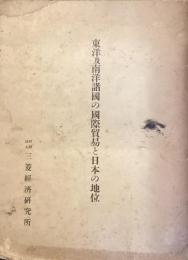 東洋及南洋諸國の國際貿易と日本の地位
財團法人 三菱經濟研究所